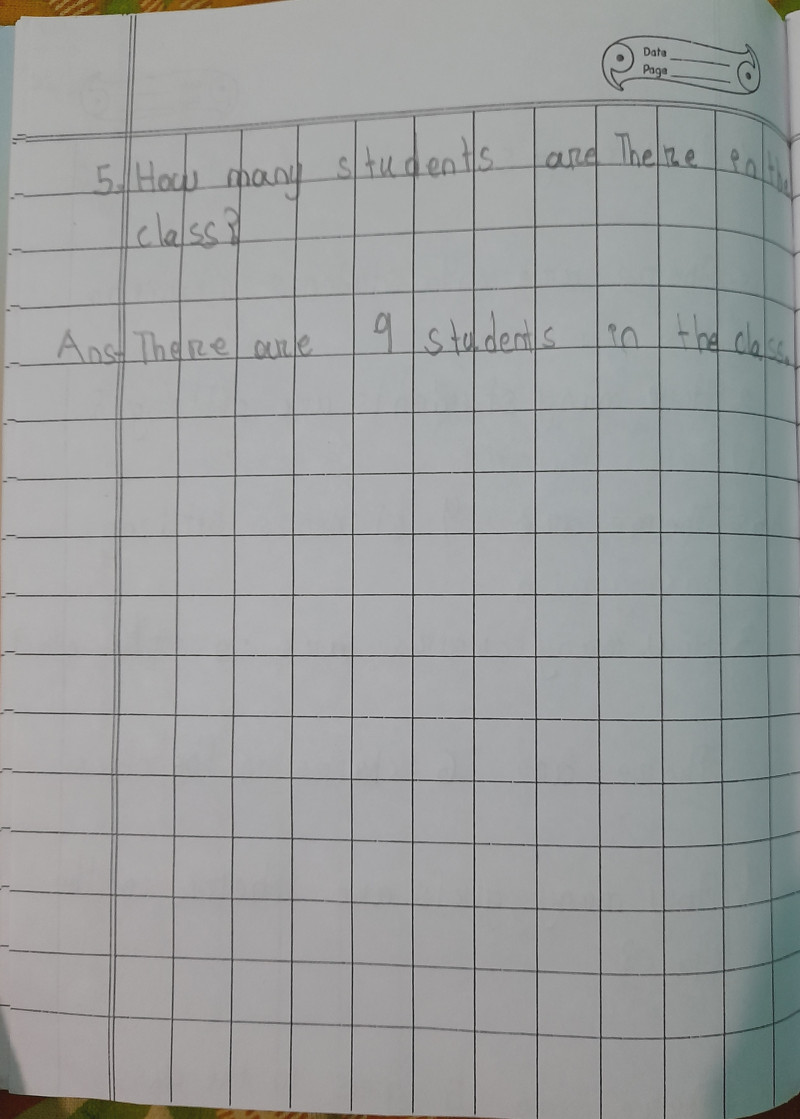 Date
Page
5. How many students are There in the
class?
Ans There are 9 students in the class.